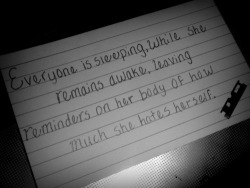 Everyone is sleeping, while she
remains awake, leaving
reminders on her body of how
much she hates herself.